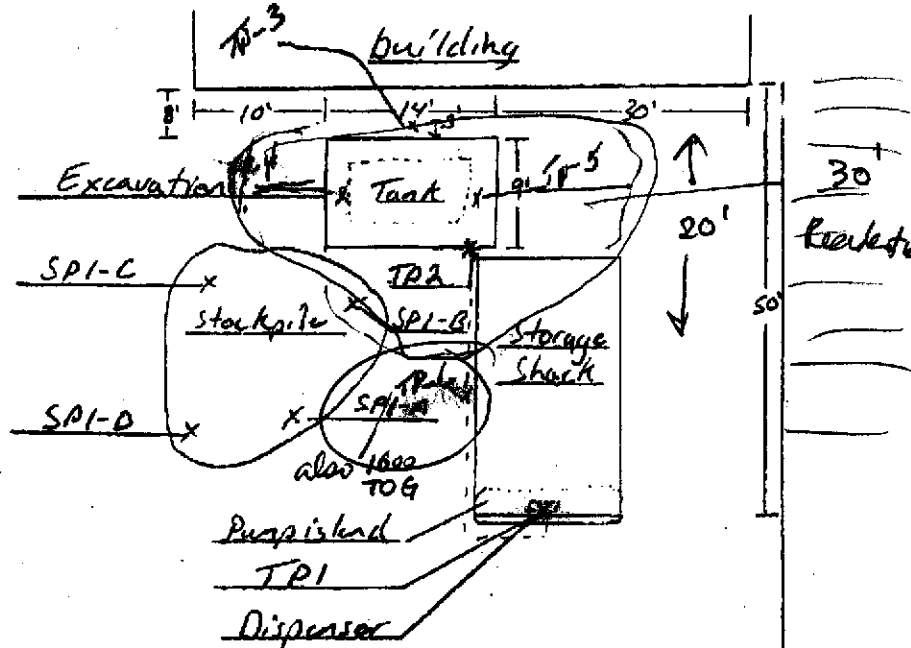 TP-3
building
8'
10'
14'
20'
3'
Excavation
Tank
9'
TP5
30'
20'
SP1-C
TP2
Stockpile
SP1-B
Storage
Shack
50'
SP1-D
SP1-A
also 1600
TOG
Pump island
TP1
Dispenser